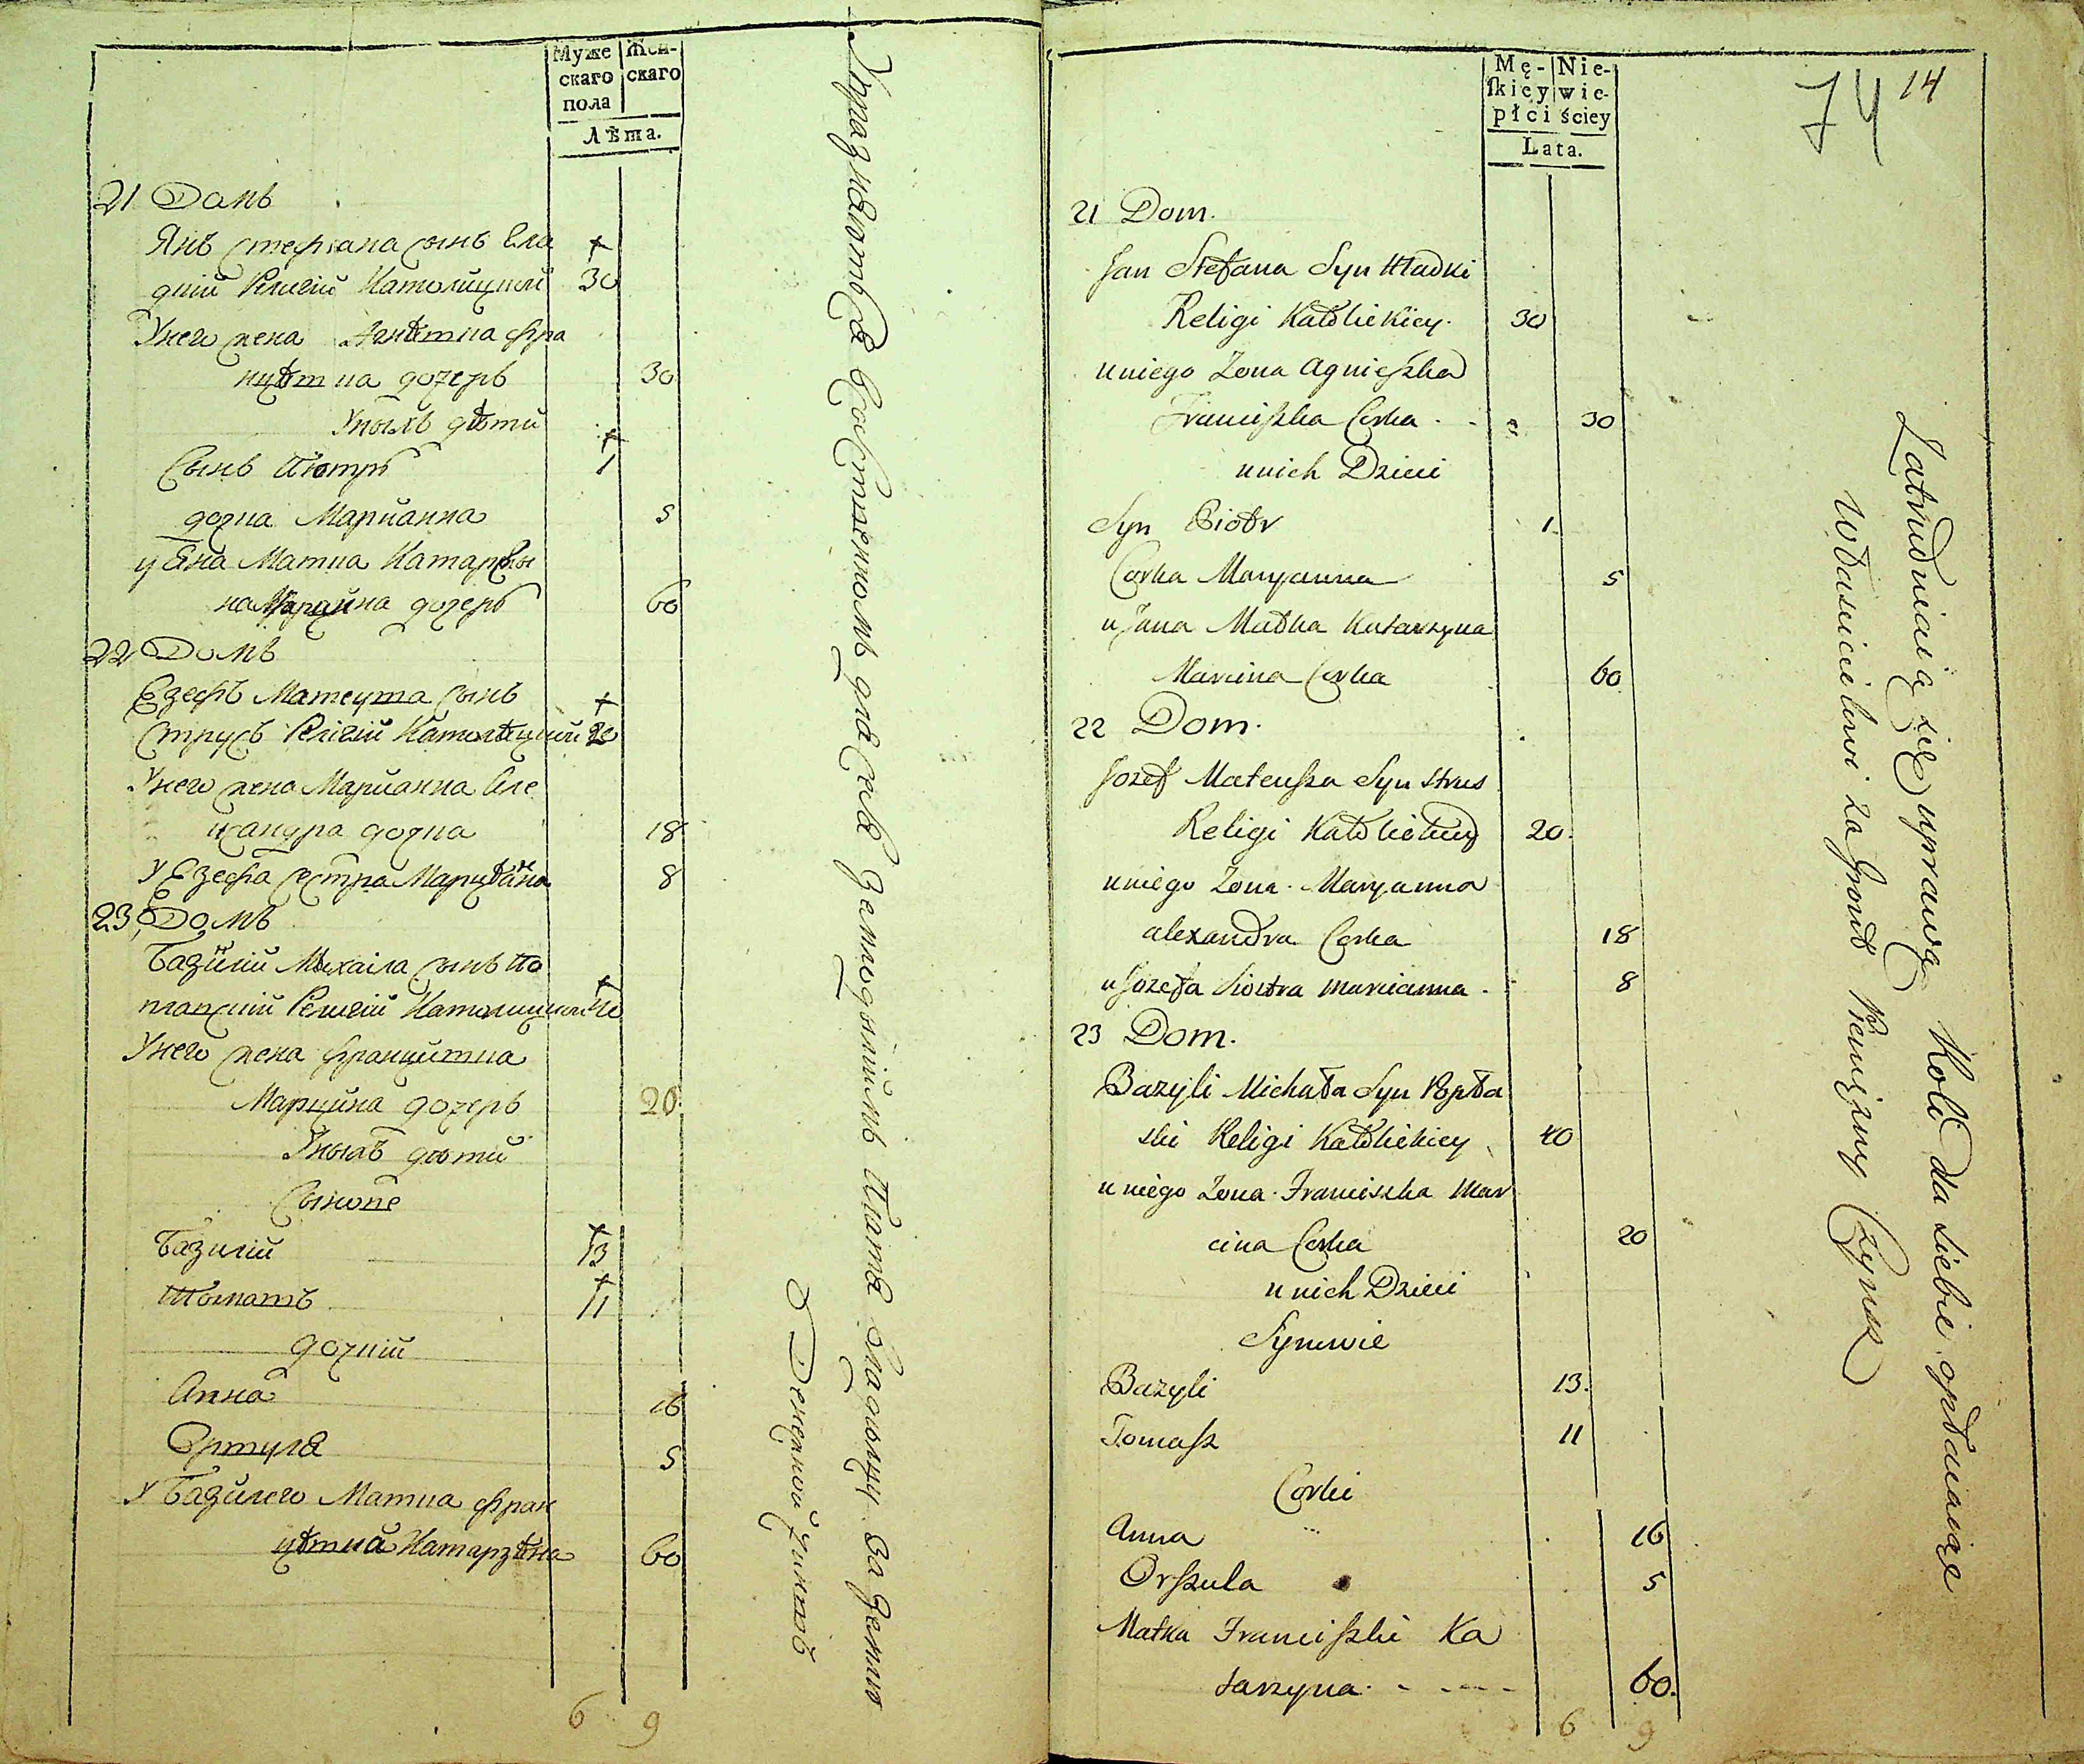 Муже
скаго
пола
Жен-
скаго
Лѣта.
21 Домъ
Янъ Стефана сынъ Гла
дкій Религіи Католицкой 30
У него жена Агнѣшка Фра
нцѣшка дочеръ 30
У ныхъ дѣти
Сынъ Піотръ 1
дочка Марианна 5
у Яна Матка Катаржи
на Марцина дочеръ 60
22 Домъ
Езефъ Матеуша сынъ
Струсъ Религіи Католѣцкой 20
У него жена Марианна Але
ксандра дочка 18
У Езефа сестра Марцѣанна 8
23 Домъ
Базилій Михаіла сынъ По
плавскій Религіи Католицкой 40
У него жена Францишка
Марцина дочеръ 20
У ныхъ дѣти
Сынове
Базилій 13
Томашъ 11
дочкій
Анна 16
Оршуля 5
У Базилего Матка Фран
цѣшка Катарзѣна 60
6 9
Упражняются въ собственномъ для себя Земледѣліимъ платя владельцу за Землю
Денежной чиншъ
Mę-
skiey
płci
Nie-
wie-
ściey
Lata.
74 14
21 Dom.
Jan Stefana Syn Hładki
Religi Katolickiey. 30
u niego Zona Agnieszka
Franciszka Corka 30
u nich Dzieci
Syn Piotr 1.
Corka Maryanna 5
u Jana Matka Katarzyna
Marcina Corka 60
22 Dom.
Jozef Mateusza Syn Strus
Religi Katolickiey 20.
u niego Zona Maryanna
alexandra Corka 18
u Jozefa Siostra marcianna 8
23 Dom.
Bazyli Michała Syn Popła
ski Religi Katolickiey 40
u niego Zona Franciszka Mar
cina Corka 20
u nich Dzieci
Synowie
Bazyli 13.
Tomasz 11
Corki
Anna 16
Orszula 5
Matka Franciszki Ka
tarzyna 60.
6 9
Zatrudniaią się uprawą Roli dla siebie opłacaiąc
Właścicielowi za Gront Pieniężny Czynsz